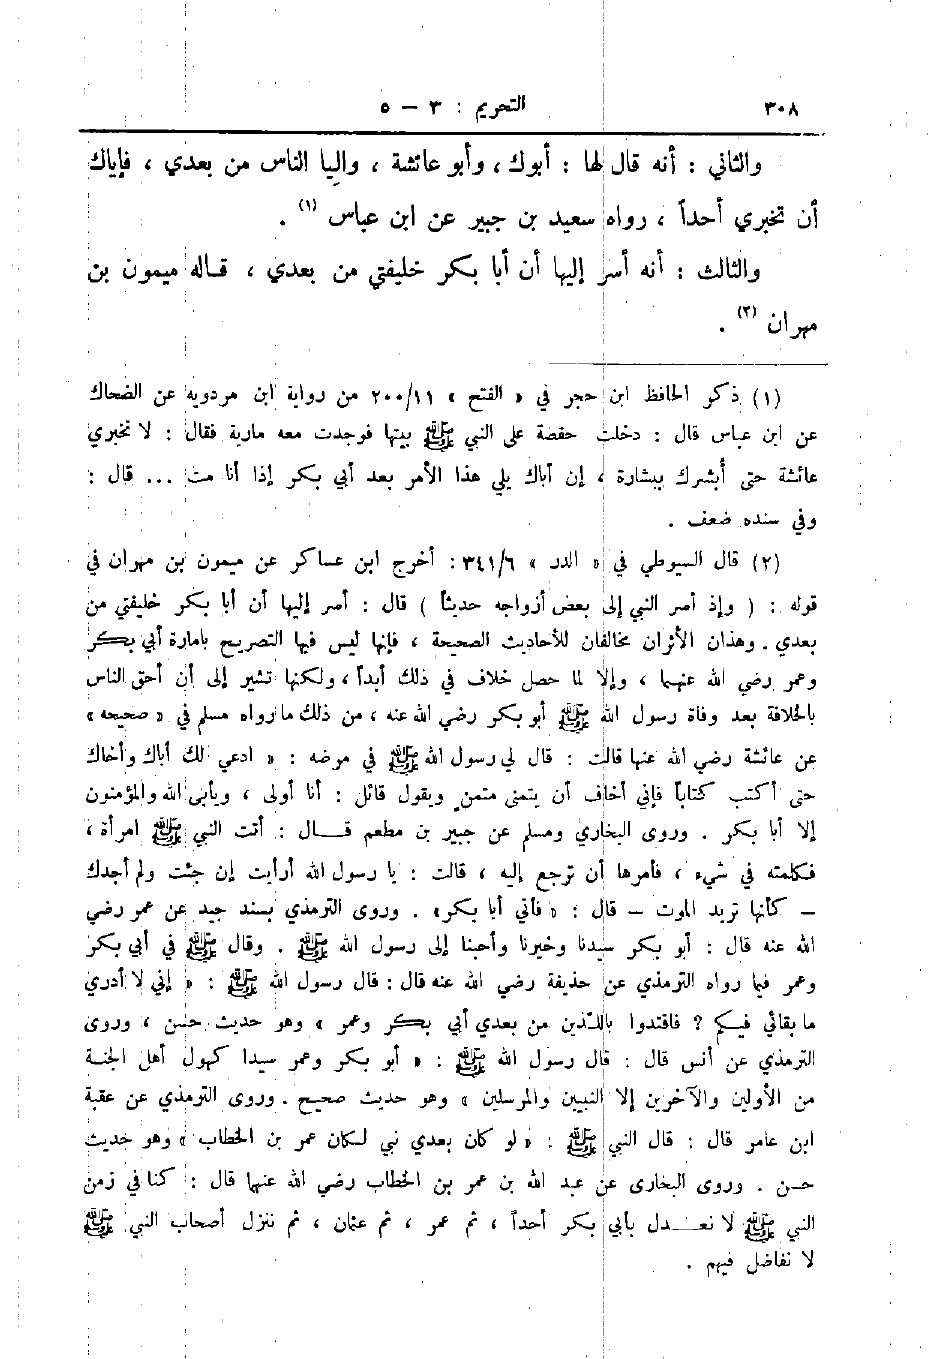 ٣٠٨ التحريم : ٣ – ٥
والثاني : أنه قال لها : أبوك ، وأبو عائشة ، واليا الناس من بعدي ، فإياك
أن تخبري أحداً ، رواه سعيد بن جبير عن ابن عباس (١) .
والثالث : أنه أسر إليها أن أبا بكر خليفتي من بعدي ، قاله ميمون بن
مهران (٢) .
(١) ذكر الحافظ ابن حجر في « الفتح » ٢٠٠/١١ من رواية ابن مردويه عن الضحاك
عن ابن عباس قال : دخلت حفصة على النبي ﷺ بيتها فوجدت معه مارية فقال : لا تخبري
عائشة حتى أُبشرك ببشارة ، إن أباك يلي هذا الأمر بعد أبي بكر إذا أنا مت ... قال :
وفي سنده ضعف .
(٢) قال السيوطي في « الدر » ٣٤١/٦ : أخرج ابن عساكر عن ميمون بن مهران في
قوله : ( وإذ أسر النبي إلى بعض أزواجه حديثاً ) قال : أسر إليها أن أبا بكر خليفتي من
بعدي . وهذان الأثران مخالفان للأحاديث الصحيحة ، فإنها ليس فيها التصريح بامارة أبي بكر
وعمر رضي الله عنهما ، وإلا لما حصل خلاف في ذلك أبداً ، ولكنها تشير إلى أن أحق الناس
بالخلافة بعد وفاة رسول الله ﷺ أبو بكر رضي الله عنه ، من ذلك ما رواه مسلم في « صحيحه »
عن عائشة رضي الله عنها قالت : قال لي رسول الله ﷺ في مرضه : « ادعي لك أباك وأخاك
حتى أكتب كتاباً فإني أخاف أن يتمنى متمنٍ ويقول قائل : أنا أولى ، ويأبى الله والمؤمنون
إلا أبا بكر . وروى البخاري ومسلم عن جبير بن مطعم قال : أتت النبي ﷺ امرأة ،
فكلمته في شيء ، فأمرها أن ترجع إليه ، قالت : يا رسول الله أرأيت إن جئت ولم أجدك
– كأنها تريد الموت – قال : « فأتي أبا بكر» . وروى الترمذي بسند جيد عن عمر رضي
الله عنه قال : أبو بكر سيدنا وخيرنا وأحبنا إلى رسول الله ﷺ . وقال ﷺ في أبي بكر
وعمر فيما رواه الترمذي عن حذيفة رضي الله عنه قال : قال رسول الله ﷺ : « إني لا أدري
ما بقائي فيكم ؟ فاقتدوا باللذين من بعدي أبي بكر وعمر » وهو حديث حسن ، وروى
الترمذي عن أنس قال : قال رسول الله ﷺ : « أبو بكر وعمر سيدا كهول أهل الجنة
من الأولين والآخرين إلا النبيين والمرسلين » وهو حديث صحيح . وروى الترمذي عن عقبة
ابن عامر قال : قال النبي ﷺ : « لو كان بعدي نبي لكان عمر بن الخطاب » وهو حديث
حسن . وروى البخارى عن عبد الله بن عمر بن الخطاب رضي الله عنهما قال : كنا في زمن
النبي ﷺ لا نعدل بأبي بكر أحداً ، ثم عمر ، ثم عثمان ، ثم ننزل أصحاب النبي ﷺ
لا نفاضل فيهم .